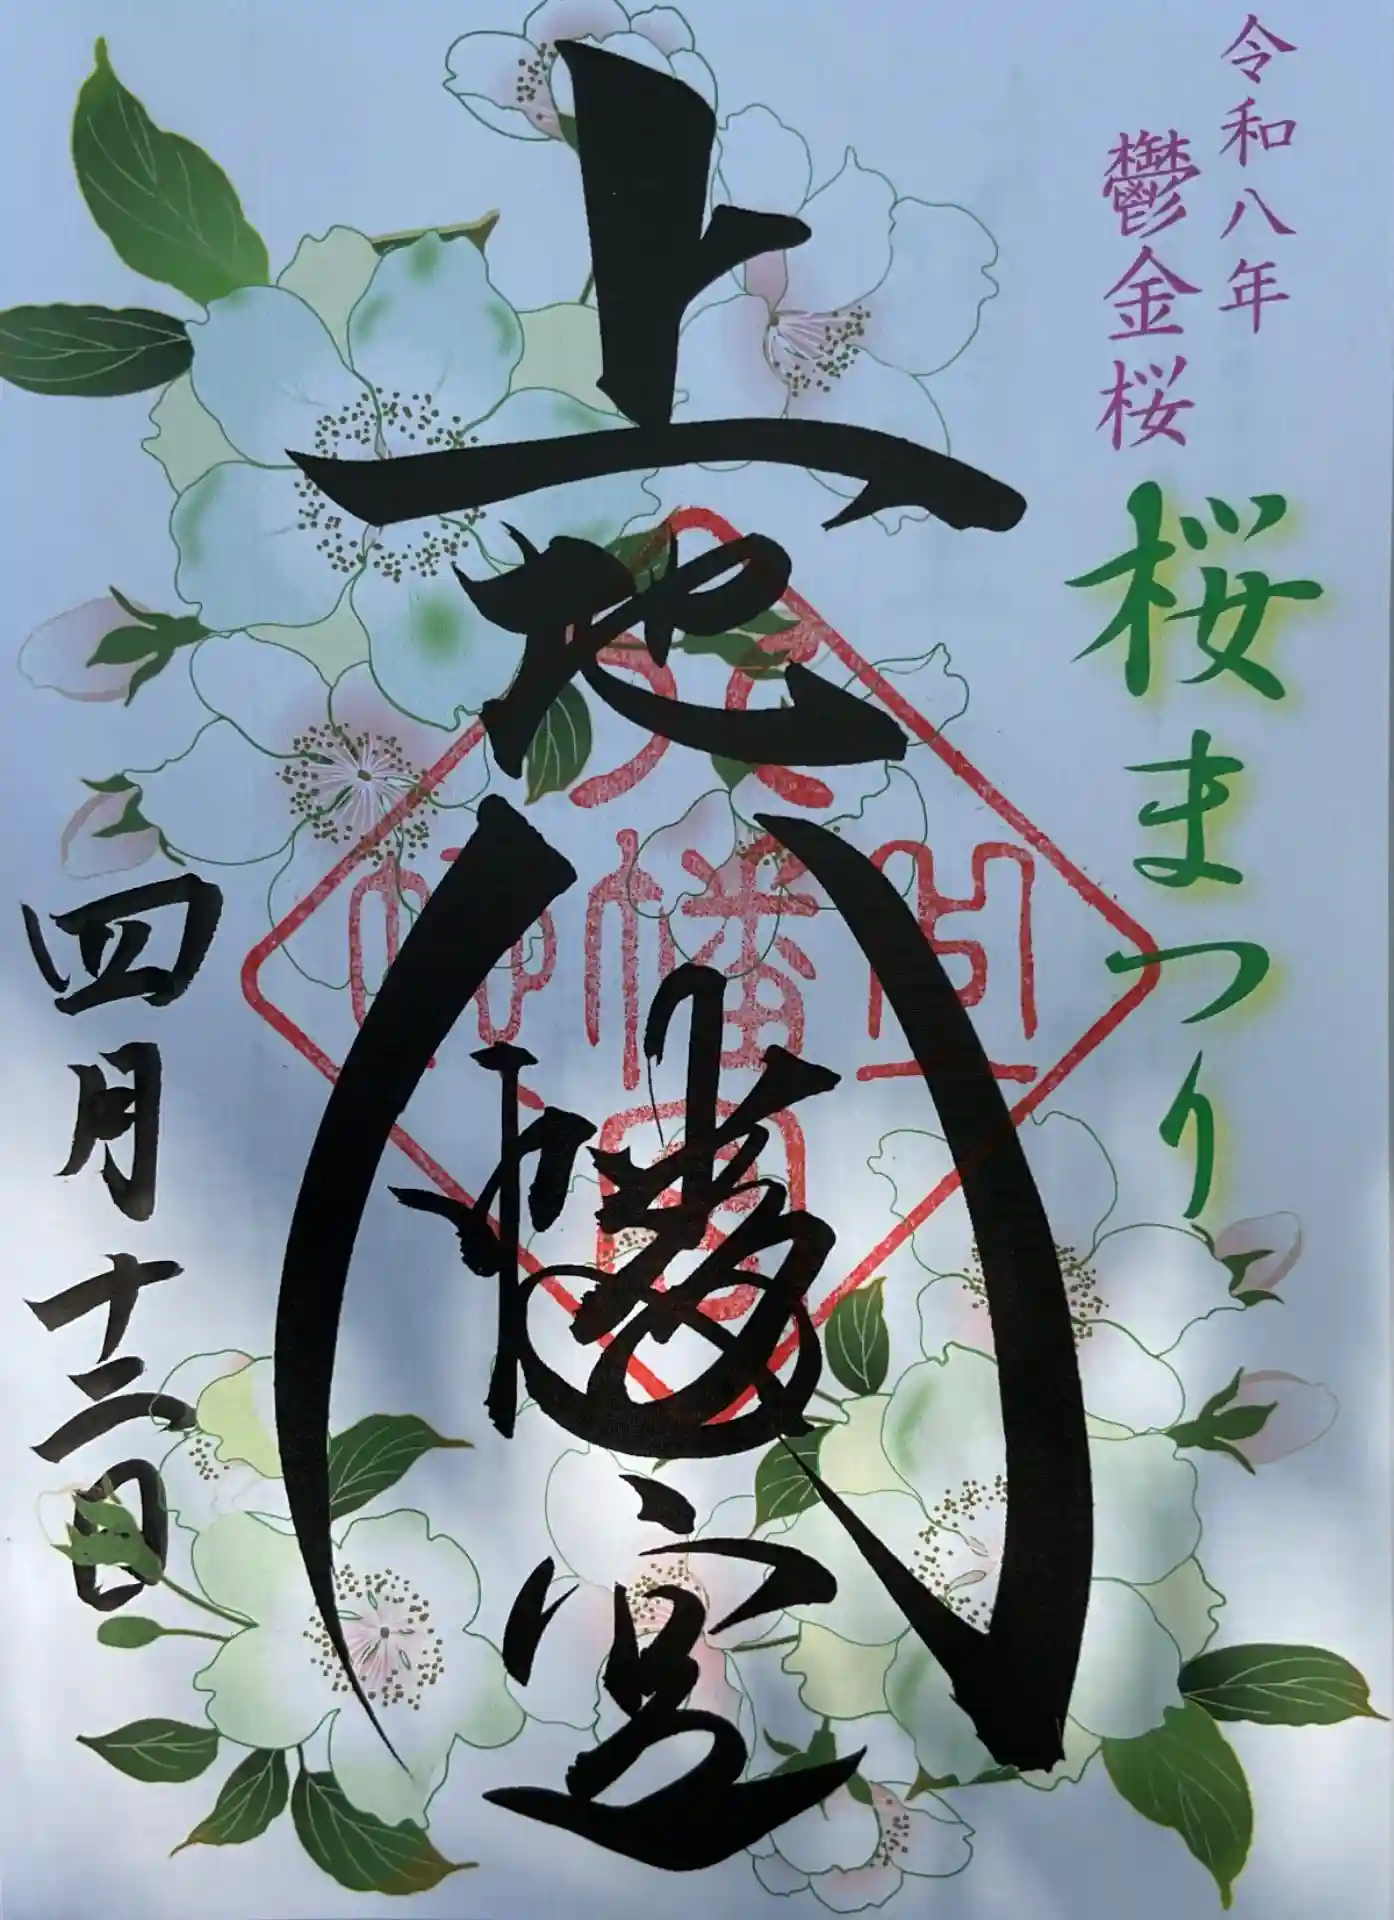 令和八年
鬱金桜
桜まつり
上地八幡宮
四月十二日